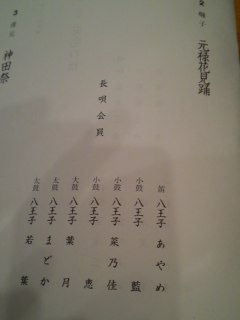 2 囃子
元禄花見踊
長唄会員
笛 八王子 あやめ
小鼓 八王子 藍
小鼓 八王子 菜乃佳
小鼓 八王子 恵
大鼓 八王子 葉月
太鼓 八王子 まどか
大鼓 八王子 若葉
3
神田祭